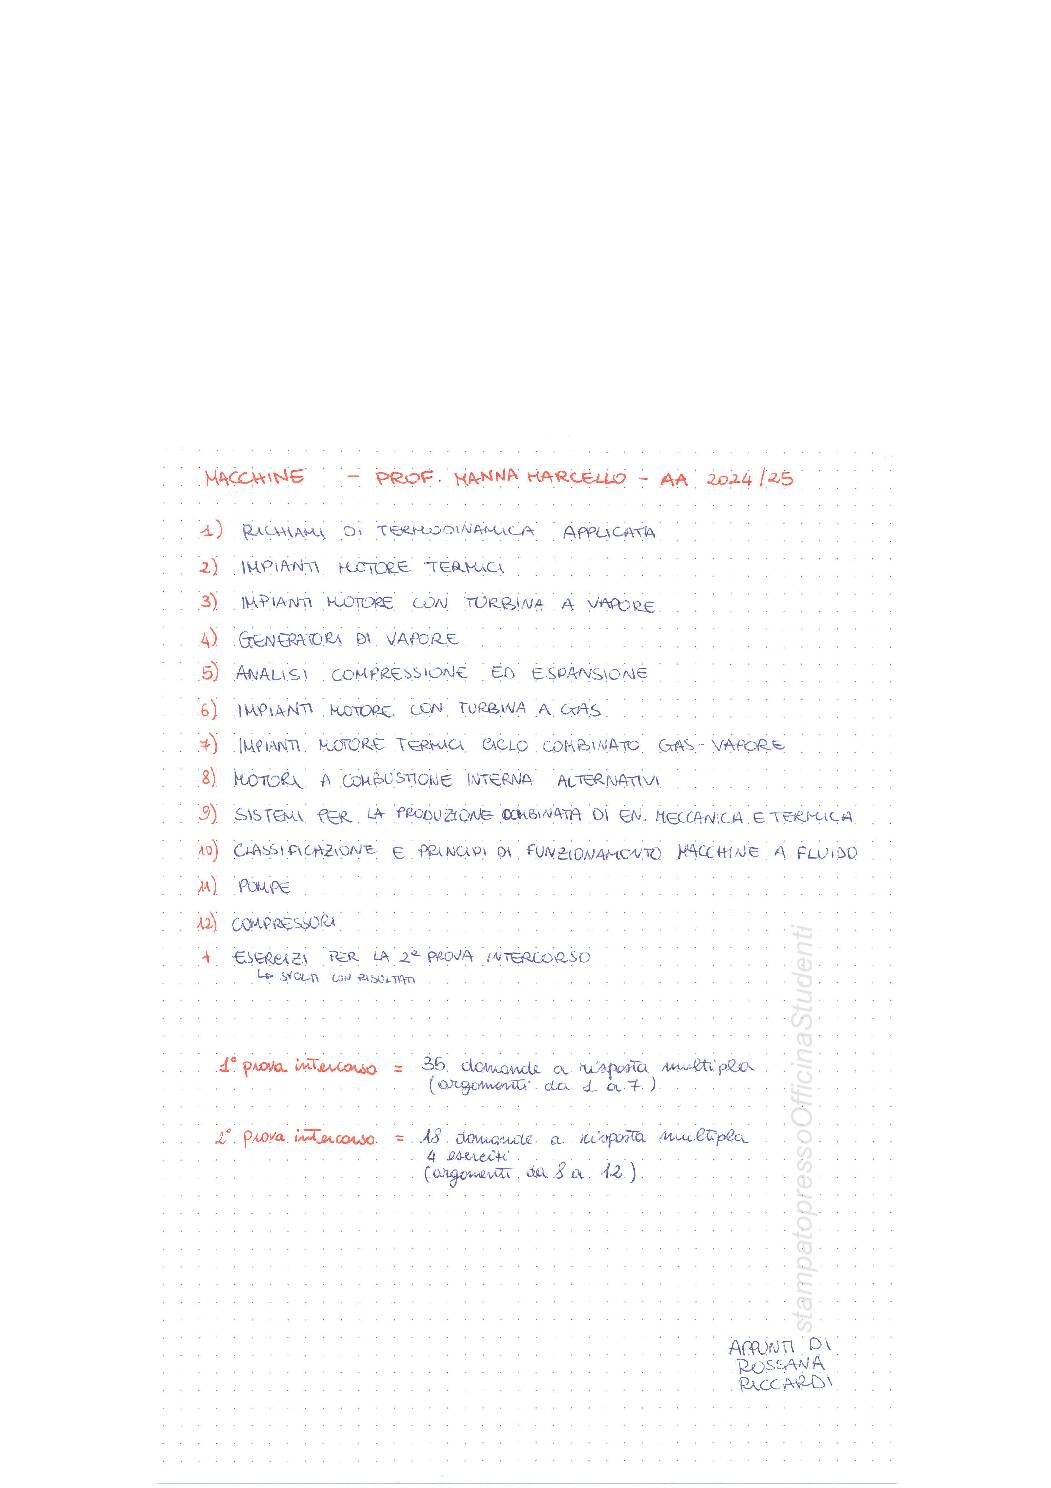 MACCHINE - PROF. MANNA MARCELLO - AA 2024/25
1) RICHIAMI DI TERMODINAMICA APPLICATA
2) IMPIANTI MOTORE TERMICI
3) IMPIANTI MOTORE CON TURBINA A VAPORE
4) GENERATORI DI VAPORE
5) ANALISI COMPRESSIONE ED ESPANSIONE
6) IMPIANTI MOTORE CON TURBINA A GAS
7) IMPIANTI MOTORE TERMICI CICLO COMBINATO GAS-VAPORE
8) MOTORI A COMBUSTIONE INTERNA ALTERNATIVI
9) SISTEMI PER LA PRODUZIONE COMBINATA DI EN. MECCANICA E TERMICA
10) CLASSIFICAZIONE E PRINCIPI DI FUNZIONAMENTO MACCHINE A FLUIDO
11) POMPE
12) COMPRESSORI
+ ESERCIZI PER LA 2ª PROVA INTERCORSO
↳ SVOLTI CON RISULTATI
1° prova intercorso = 35 domande a risposta multipla
(argomenti da 1 a 7)
2° prova intercorso = 18 domande a risposta multipla
4 esercizi
(argomenti da 8 a 12)
stampatopressoOfficinaStudenti
APPUNTI DI
ROSSANA
RICCARDI